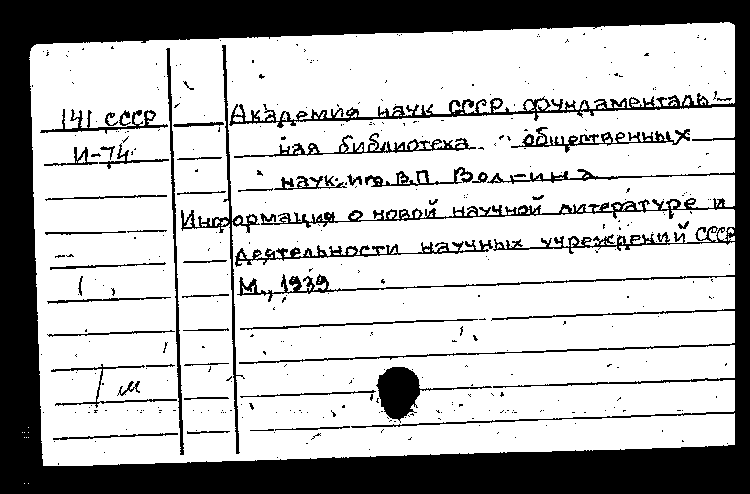 141 СССР
И-74
Академия наук СССР. Фундаменталь-
ная библиотека общественных
наук им. В.П. Волгина
Информация о новой научной литературе и
деятельности научных учреждений СССР
М., 1939
1 м